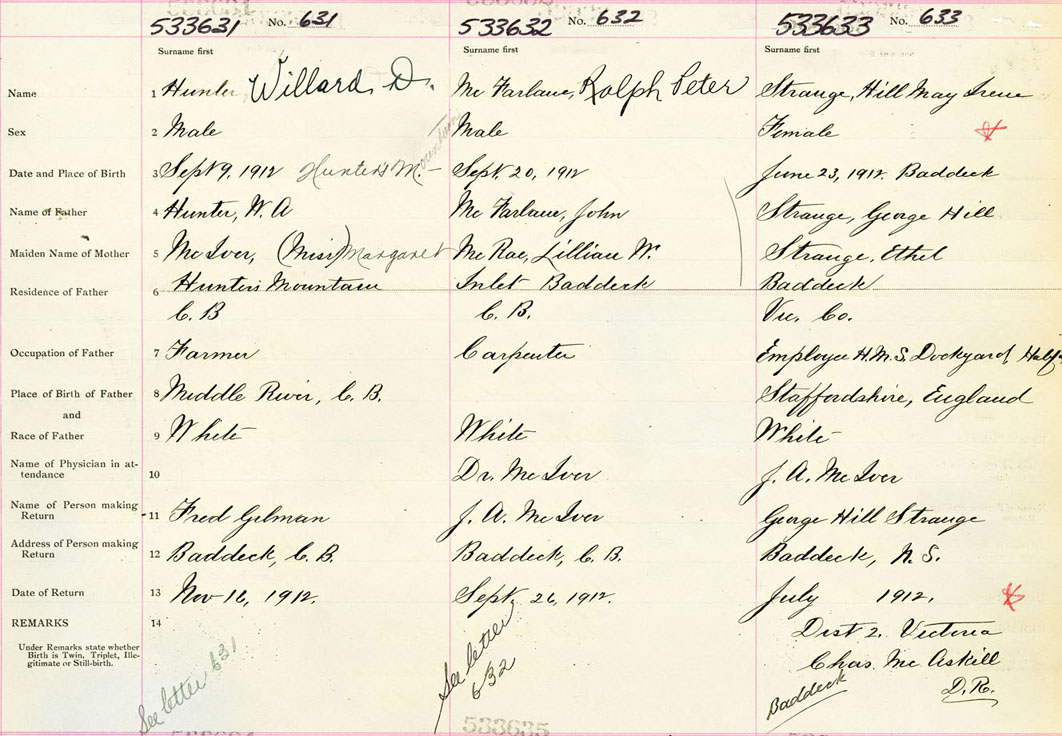 533631 No. 631 533632 No. 632 533633 No. 633
Surname first Surname first Surname first
Name 1 Hunter Willard D. Mc Farlane, Ralph Peter Strange, Hill May Irene
Sex 2 Male Male Female
Date and Place of Birth 3 Sept 9, 1912 Hunter's Mountain Sept. 20, 1912 June 23, 1912. Baddeck
Name of Father 4 Hunter, W. A Mc Farlane, John Strange, George Hill
Maiden Name of Mother 5 Mc Iver, (Miss) Margaret Mc Rae, Lillian W. Strange, Ethel
Residence of Father 6 Hunter's Mountain Inlet Baddeck Baddeck
C. B C. B. Vic. Co.
Occupation of Father 7 Farmer Carpenter Employee H.M.S. Dockyard, Halfx
Place of Birth of Father 8 Middle River, C. B. Staffordshire, England
and
Race of Father 9 White White White
Name of Physician in at-
tendance 10 Dr. Mc Iver J. A. Mc Iver
Name of Person making
Return 11 Fred Gilman J. A. Mc Iver George Hill Strange
Address of Person making
Return 12 Baddeck, C. B. Baddeck, C. B. Baddeck, N. S.
Date of Return 13 Nov 16, 1912. Sept. 26, 1912. July 1912.
REMARKS 14 Dist 2. Victoria
Under Remarks state whether
Birth is Twin, Triplet, Ille-
gitimate or Still-birth.
Chas. Mc Askill
D. R.
See letter 631
See letter
632
Baddeck
533635